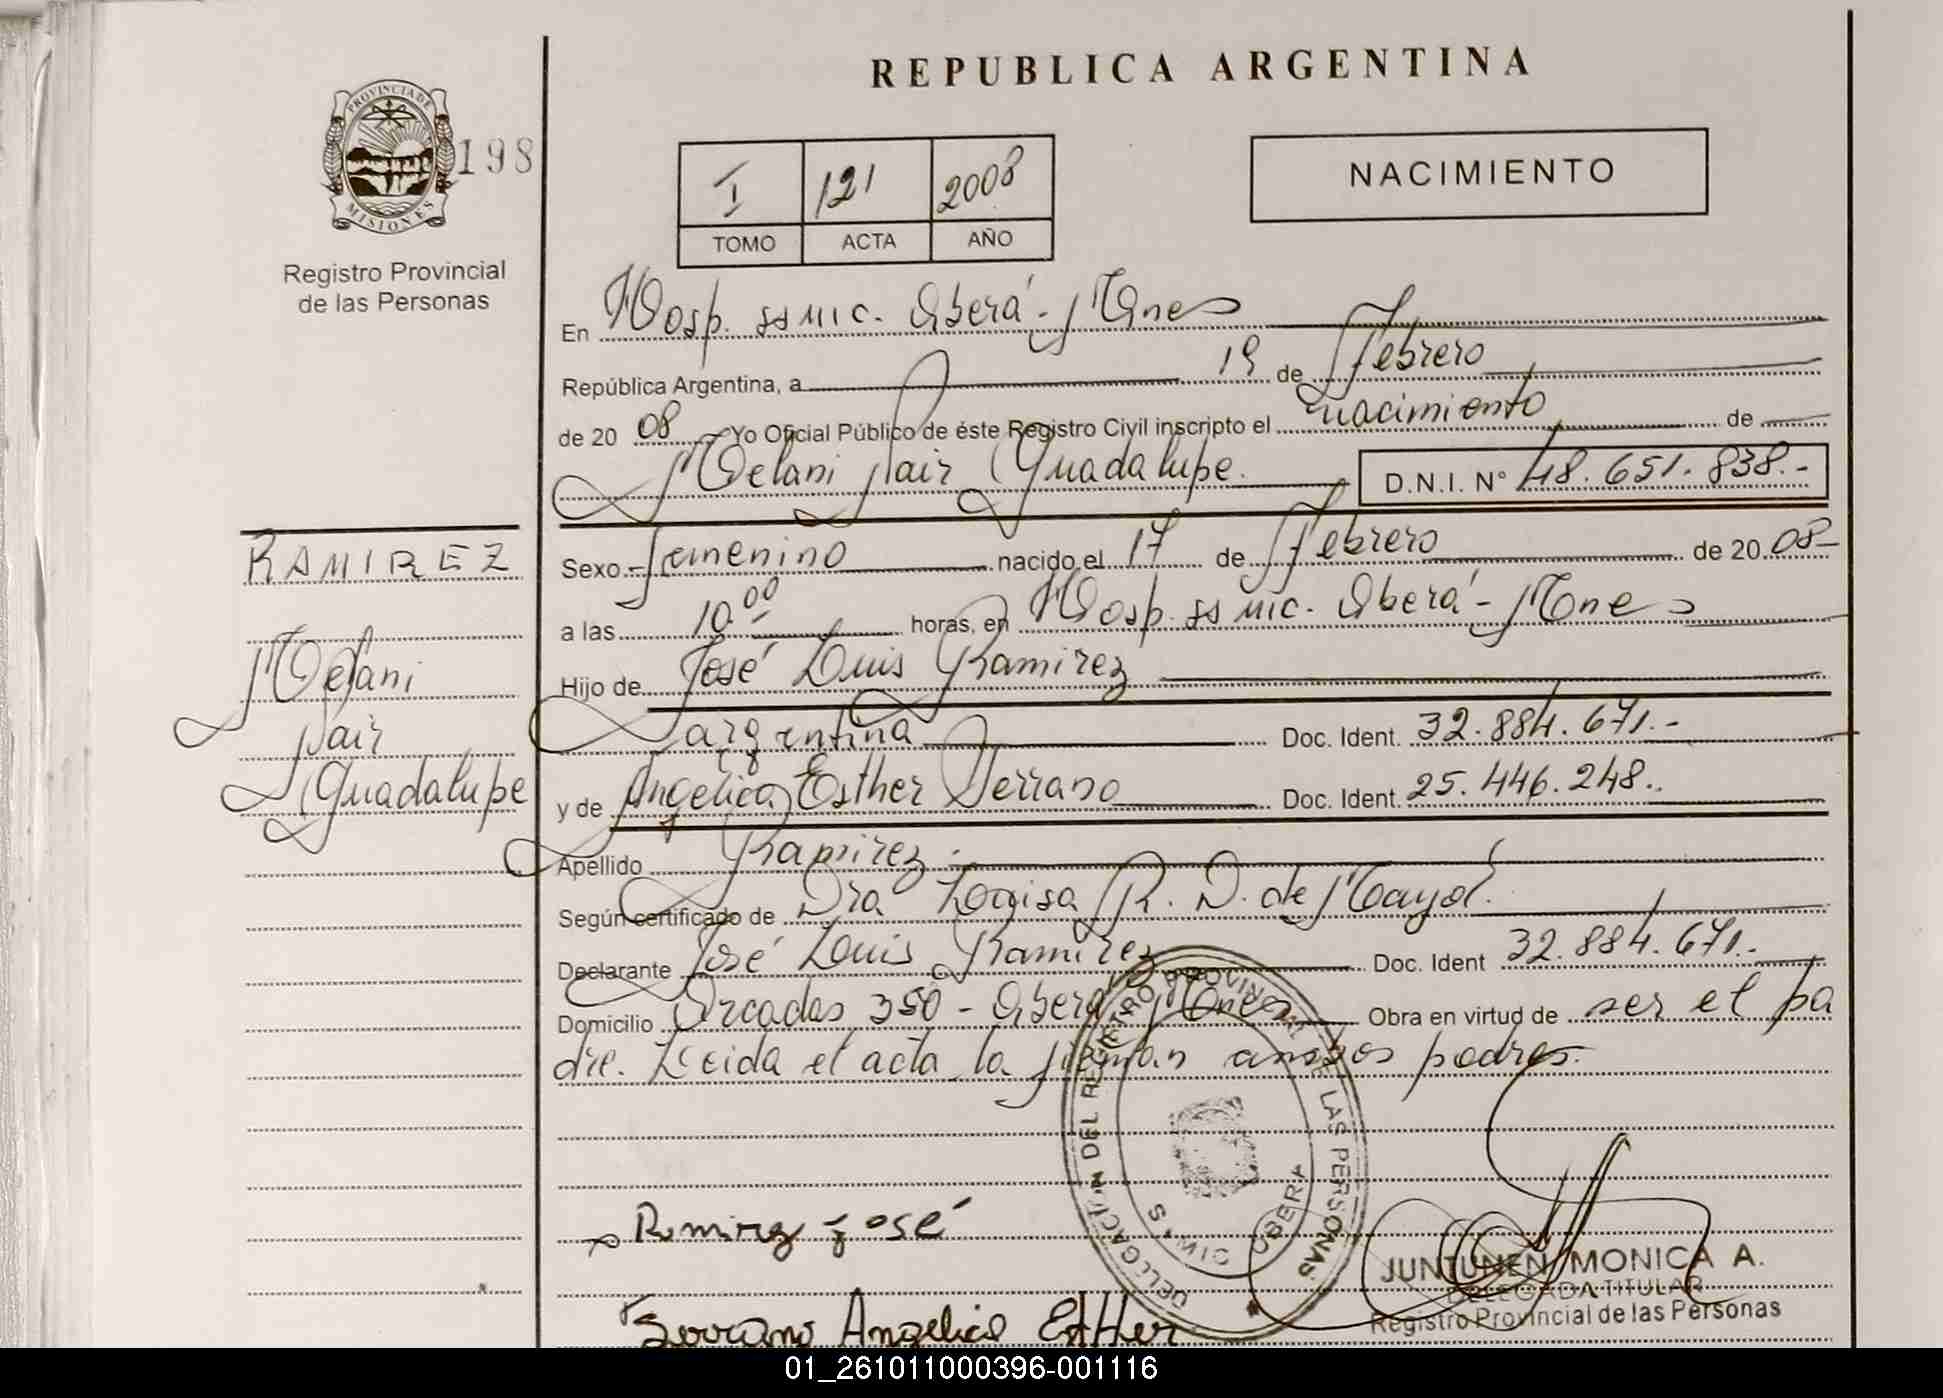 REPUBLICA ARGENTINA
PROVINCIA DE
MISIONES
198
Registro Provincial
de las Personas
I 121 2008
TOMO ACTA AÑO
NACIMIENTO
En Hosp. ss mic. Oberá - Mnes
República Argentina, a 19 de Febrero
de 20 08 Yo Oficial Público de éste Registro Civil inscripto el nacimiento de
Melani Nair Guadalupe. D.N.I. N° 48.651.838.-
RAMIREZ
Melani
Nair
Guadalupe
Sexo femenino nacido el 17 de Febrero de 20 08
a las 10.00 horas, en Hosp. ss mic. Oberá - Mnes
Hijo de José Luis Ramirez
argentina Doc. Ident. 32.884.671.-
y de Angélica Esther Serrano Doc. Ident. 25.446.248..
Apellido Ramirez.
Según certificado de Dra R. D. de Mayol.
Declarante José Luis Ramirez Doc. Ident 32.884.671.-
Domicilio Arcadas 350 - Oberá Mnes Obra en virtud de ser el pa
dre. Leida el acta la firman ambos padres.
DELEGACION DEL REGISTRO PROVINCIAL DE LAS PERSONAS
OBERA
Ramirez José
Serrano Angelica EstHer
JUNTUNEN, MONICA A.
DELEGADA TITULAR
Registro Provincial de las Personas
01_261011000396-001116